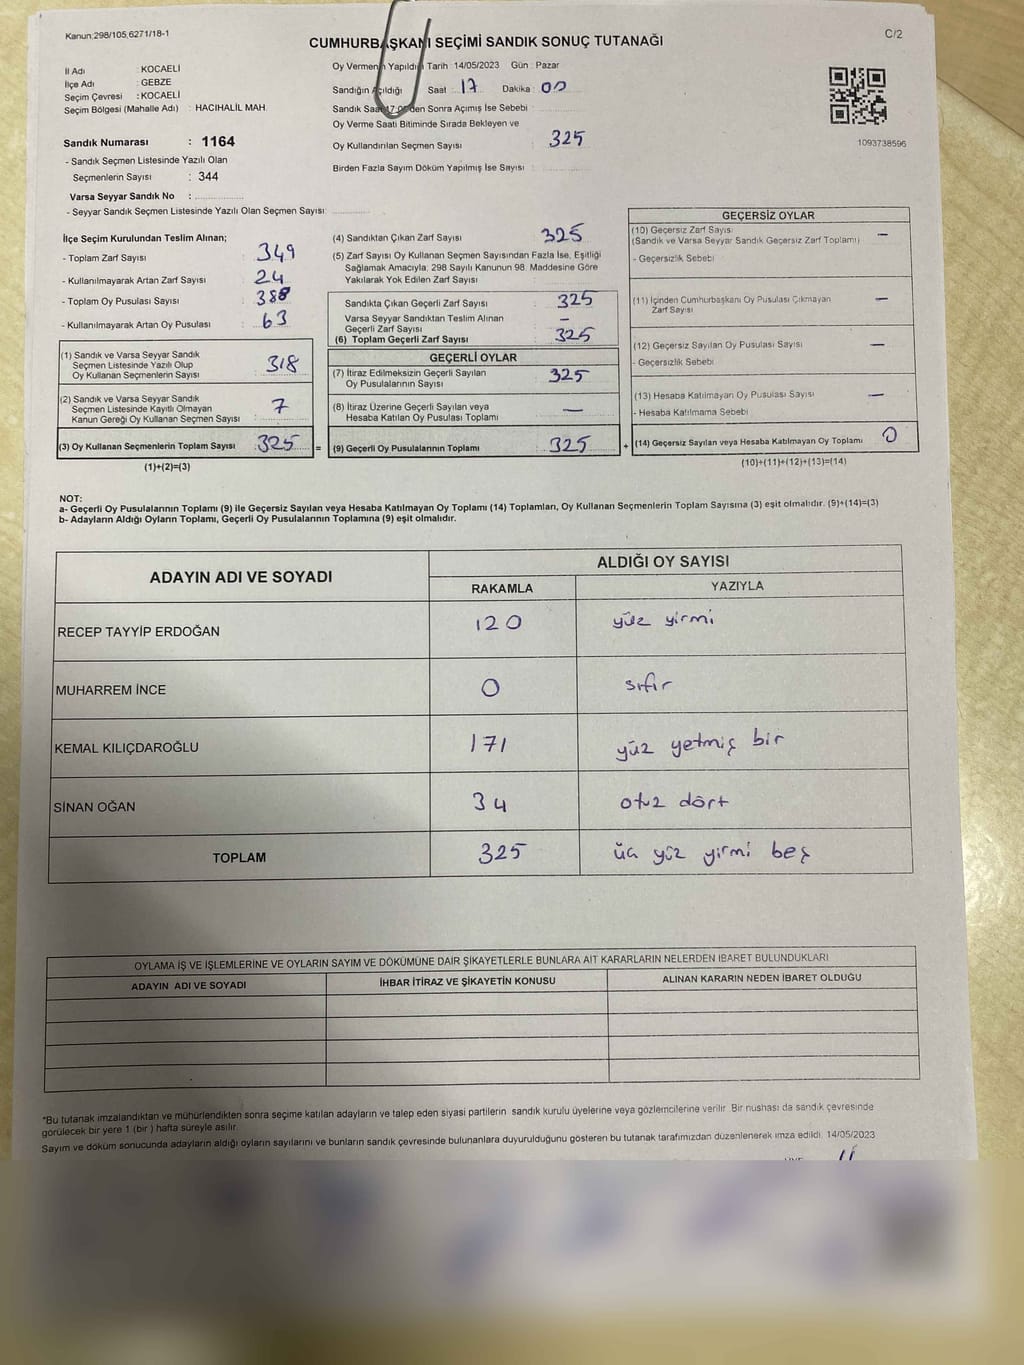 Kanun:298/105,6271/18-1
C/2
CUMHURBAŞKANI SEÇİMİ SANDIK SONUÇ TUTANAĞI
İl Adı : KOCAELİ
İlçe Adı : GEBZE
Seçim Çevresi : KOCAELİ
Seçim Bölgesi (Mahalle Adı) : HACIHALİL MAH.
Oy Vermenin Yapıldığı Tarih : 14/05/2023 Gün : Pazar
Sandığın Açıldığı Saat : 17 Dakika : 00
Sandık Saat 17:00'den Sonra Açımış İse Sebebi :
Oy Verme Saati Bitiminde Sırada Bekleyen ve
Oy Kullandırılan Seçmen Sayısı : 325
Birden Fazla Sayım Döküm Yapılmış İse Sayısı :
1093738596
Sandık Numarası : 1164
- Sandık Seçmen Listesinde Yazılı Olan
Seçmenlerin Sayısı : 344
Varsa Seyyar Sandık No :
- Seyyar Sandık Seçmen Listesinde Yazılı Olan Seçmen Sayısı:
İlçe Seçim Kurulundan Teslim Alınan;
- Toplam Zarf Sayısı : 349
- Kullanılmayarak Artan Zarf Sayısı : 24
- Toplam Oy Pusulası Sayısı : 388
- Kullanılmayarak Artan Oy Pusulası : 63
(1) Sandık ve Varsa Seyyar Sandık
Seçmen Listesinde Yazılı Olup
Oy Kullanan Seçmenlerin Sayısı : 318
(2) Sandık ve Varsa Seyyar Sandık
Seçmen Listesinde Kayıtlı Olmayan
Kanun Gereği Oy Kullanan Seçmen Sayısı : 7
(3) Oy Kullanan Seçmenlerin Toplam Sayısı : 325 =
(1)+(2)=(3)
(4) Sandıktan Çıkan Zarf Sayısı : 325
(5) Zarf Sayısı Oy Kullanan Seçmen Sayısından Fazla İse, Eşitliği
Sağlamak Amacıyla; 298 Sayılı Kanunun 98. Maddesine Göre
Yakılarak Yok Edilen Zarf Sayısı :
Sandıkta Çıkan Geçerli Zarf Sayısı : 325
Varsa Seyyar Sandıktan Teslim Alınan
Geçerli Zarf Sayısı : —
(6) Toplam Geçerli Zarf Sayısı : 325
GEÇERLİ OYLAR
(7) İtiraz Edilmeksizin Geçerli Sayılan
Oy Pusulalarının Sayısı : 325
(8) İtiraz Üzerine Geçerli Sayılan veya
Hesaba Katılan Oy Pusulası Toplamı : —
(9) Geçerli Oy Pusulalarının Toplamı : 325 +
GEÇERSİZ OYLAR
(10) Geçersiz Zarf Sayısı : —
(Sandık ve Varsa Seyyar Sandık Geçersiz Zarf Toplamı)
- Geçersizlik Sebebi
(11) İçinden Cumhurbaşkanı Oy Pusulası Çıkmayan : —
Zarf Sayısı
(12) Geçersiz Sayılan Oy Pusulası Sayısı : —
- Geçersizlik Sebebi
(13) Hesaba Katılmayan Oy Pusulası Sayısı : —
- Hesaba Katılmama Sebebi
(14) Geçersiz Sayılan veya Hesaba Katılmayan Oy Toplamı : 0
(10)+(11)+(12)+(13)=(14)
NOT:
a- Geçerli Oy Pusulalarının Toplamı (9) ile Geçersiz Sayılan veya Hesaba Katılmayan Oy Toplamı (14) Toplamları, Oy Kullanan Seçmenlerin Toplam Sayısına (3) eşit olmalıdır. (9)+(14)=(3)
b- Adayların Aldığı Oyların Toplamı, Geçerli Oy Pusulalarının Toplamına (9) eşit olmalıdır.
ADAYIN ADI VE SOYADI ALDIĞI OY SAYISI
RAKAMLA YAZIYLA
RECEP TAYYİP ERDOĞAN 120 yüz yirmi
MUHARREM İNCE 0 sıfır
KEMAL KILIÇDAROĞLU 171 yüz yetmiş bir
SİNAN OĞAN 34 otuz dört
TOPLAM 325 üç yüz yirmi beş
OYLAMA İŞ VE İŞLEMLERİNE VE OYLARIN SAYIM VE DÖKÜMÜNE DAİR ŞİKAYETLERLE BUNLARA AİT KARARLARIN NELERDEN İBARET BULUNDUKLARI
ADAYIN ADI VE SOYADI İHBAR İTİRAZ VE ŞİKAYETİN KONUSU ALINAN KARARIN NEDEN İBARET OLDUĞU
*Bu tutanak imzalandıktan ve mühürlendikten sonra seçime katılan adayların ve talep eden siyasi partilerin sandık kurulu üyelerine veya gözlemcilerine verilir. Bir nushası da sandık çevresinde
görülecek bir yere 1 (bir) hafta süreyle asılır.
Sayım ve döküm sonucunda adayların aldığı oyların sayılarını ve bunların sandık çevresinde bulunanlara duyurulduğunu gösteren bu tutanak tarafımızdan düzenlenerek imza edildi. 14/05/2023